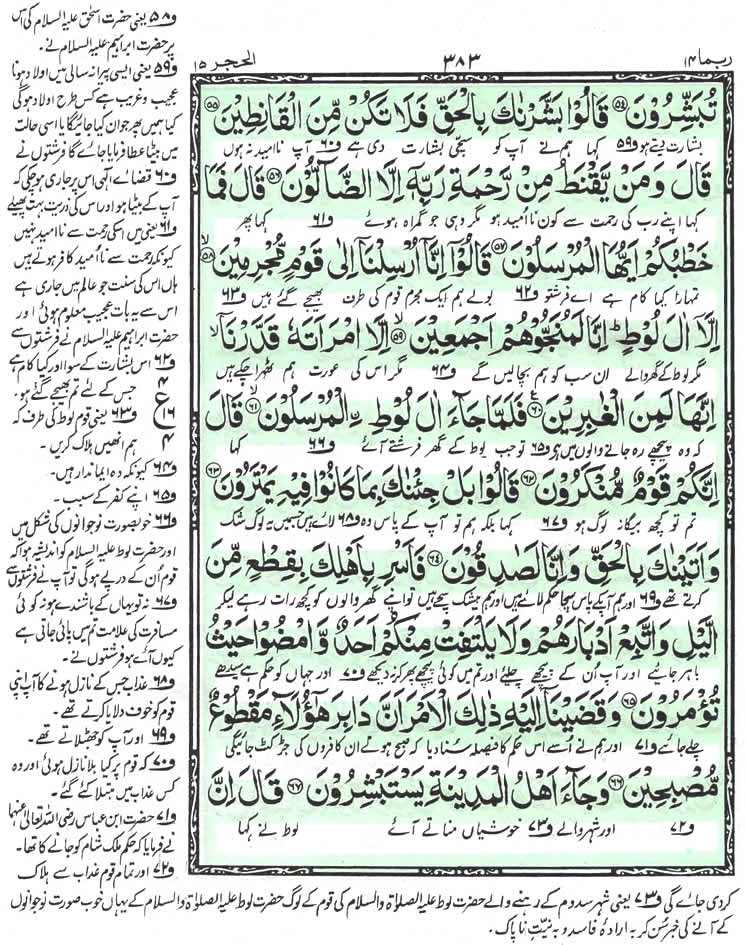 ربما ۱۴
۳۸۳
الحجر ۱۵
تُبَشِّرُوْنَ ﴿۵۴﴾ قَالُوْا بَشَّرْنٰكَ بِالْحَقِّ فَلَا تَكُنْ مِّنَ الْقَانِطِيْنَ ﴿۵۵﴾
بشارت دیتے ہو ف۵۹ کہا ہم نے آپ کو سچی بشارت دی ہے ف۶۰ آپ ناامید نہ ہوں
قَالَ وَمَنْ يَّقْنَطُ مِنْ رَّحْمَةِ رَبِّهٖۤ اِلَّا الضَّآلُّوْنَ ﴿۵۶﴾ قَالَ فَمَا
کہا اپنے رب کی رحمت سے کون ناامید ہو مگر وہی جو گمراہ ہوئے ف۶۱ کہا پھر
خَطْبُكُمْ اَيُّهَا الْمُرْسَلُوْنَ ﴿۵۷﴾ قَالُوْۤا اِنَّاۤ اُرْسِلْنَاۤ اِلٰى قَوْمٍ مُّجْرِمِيْنَ ﴿۵۸﴾
تمہارا کیا کام ہے اے فرشتو ف۶۲ بولے ہم ایک مجرم قوم کی طرف بھیجے گئے ہیں ف۶۳
اِلَّاۤ اٰلَ لُوْطٍ ؕ اِنَّا لَمُنَجُّوْهُمْ اَجْمَعِيْنَ ﴿۵۹﴾ اِلَّا امْرَاَتَهٗ قَدَّرْنَاۤ
مگر لوط کے گھر والے ان سب کو ہم بچالیں گے ف۶۴ مگر اس کی عورت ہم ٹھہرا چکے ہیں
اِنَّهَا لَمِنَ الْغٰبِرِيْنَ ﴿۶۰﴾ فَلَمَّا جَآءَ اٰلَ لُوْطِ ِ۟الْمُرْسَلُوْنَ ﴿۶۱﴾ قَالَ
کہ وہ پیچھے رہ جانے والوں میں ہے ف۶۵ تو جب لوط کے گھر فرشتے آئے ف۶۶ کہا
اِنَّكُمْ قَوْمٌ مُّنْكَرُوْنَ ﴿۶۲﴾ قَالُوْا بَلْ جِئْنٰكَ بِمَا كَانُوْا فِيْهِ يَمْتَرُوْنَ ﴿۶۳﴾
تم تو کچھ بیگانہ لوگ ہو ف۶۷ کہا بلکہ ہم تو آپ کے پاس وہ ف۶۸ لائے ہیں جس میں یہ لوگ شک
وَاَتَيْنٰكَ بِالْحَقِّ وَاِنَّا لَصٰدِقُوْنَ ﴿۶۴﴾ فَاَسْرِ بِاَهْلِكَ بِقِطْعٍ مِّنَ
کرتے تھے ف۶۹ اور ہم آپ کے پاس سچا حکم لائے ہیں اور ہم بیشک سچے ہیں تو اپنے گھر والوں کو کچھ رات رہے لیکر
الَّيْلِ وَاتَّبِعْ اَدْبَارَهُمْ وَلَا يَلْتَفِتْ مِنْكُمْ اَحَدٌ وَّامْضُوْا حَيْثُ
باہر جایئے اور آپ ان کے پیچھے چلئے اور تم میں کوئی پیچھے پھر کر نہ دیکھے ف۷۰ اور جہاں کو حکم ہے سیدھے
تُؤْمَرُوْنَ ﴿۶۵﴾ وَقَضَيْنَاۤ اِلَيْهِ ذٰلِكَ الْاَمْرَ اَنَّ دَابِرَ هٰۤؤُلَآءِ مَقْطُوْعٌ
چلے جائیے ف۷۱ اور ہم نے اسے اس حکم کا فیصلہ سنا دیا کہ صبح ہوتے ان کافروں کی جڑ کٹ جائیگی
مُّصْبِحِيْنَ ﴿۶۶﴾ وَجَآءَ اَهْلُ الْمَدِيْنَةِ يَسْتَبْشِرُوْنَ ﴿۶۷﴾ قَالَ اِنَّ
ف۷۲ اور شہر والے ف۷۳ خوشیاں مناتے آئے لوط نے کہا
ف۵۸ یعنی حضرت اسحٰق علیہ السلام کی اس
پر حضرت ابراہیم علیہ السلام نے۔
ف۵۹ یعنی ایسی پیرانہ سالی میں اولاد ہونا
عجیب و غریب ہے کس طرح اولاد ہوگی
کیا ہمیں پھر جوان کیا جائے گا یا اسی حالت
میں بیٹا عطا فرمایا جائے گا فرشتوں نے
ف۶۰ قضائے الٰہی اس پر جاری ہو چکی کہ
آپ کے بیٹا ہو اور اس کی ذریت بہت پھیلے
ف۶۱ یعنی میں اسکی رحمت سے ناامید نہیں
کیونکہ رحمت سے ناامید کافر ہوتے ہیں
ہاں اس کی سنت جو عالم میں جاری ہے
اس سے یہ بات عجیب معلوم ہوئی اور
حضرت ابراہیم علیہ السلام نے فرشتوں سے
ف۶۲ اس بشارت کے سوا اور کیا کام ہے
جس کے لئے تم بھیجے گئے ہو۔
ع ۴ ۱۶ ۴
ف۶۳ یعنی قوم لوط کی طرف کہ
ہم انھیں ہلاک کریں۔
ف۶۴ کیونکہ وہ ایماندار ہیں۔
ف۶۵ اپنے کفر کے سبب۔
ف۶۶ خوبصورت نوجوانوں کی شکل میں
اور حضرت لوط علیہ السلام کو اندیشہ ہوا کہ
قوم اُن کے درپے ہوگی تو آپ نے فرشتوں سے
ف۶۷ نہ تو یہاں کے باشندے ہو نہ کوئی
مسافرت کی علامت تم میں پائی جاتی ہے
کیوں آئے ہو فرشتوں نے۔
ف۶۸ عذاب جس کے نازل ہونے کا آپ اپنی
قوم کو خوف دلایا کرتے تھے۔
ف۶۹ اور آپ کو جھٹلاتے تھے۔
ف۷۰ کہ قوم پر کیا بلا نازل ہوئی اور وہ
کس عذاب میں مبتلا کئے گئے۔
ف۷۱ حضرت ابن عباس رضی اللہ تعالیٰ عنہما
نے فرمایا کہ حکم ملک شام کو جانے کا تھا۔
ف۷۲ اور تمام قوم عذاب سے ہلاک
کردی جائے گی ف۷۳ یعنی شہر سدوم کے رہنے والے حضرت لوط علیہ الصلوٰۃ والسلام کی قوم کے لوگ حضرت لوط علیہ الصلوٰۃ والسلام کے یہاں خوب صورت نوجوانوں
کے آنے کی خبر سُن کر بہ ارادۂ فاسد و بہ نیّتِ ناپاک۔